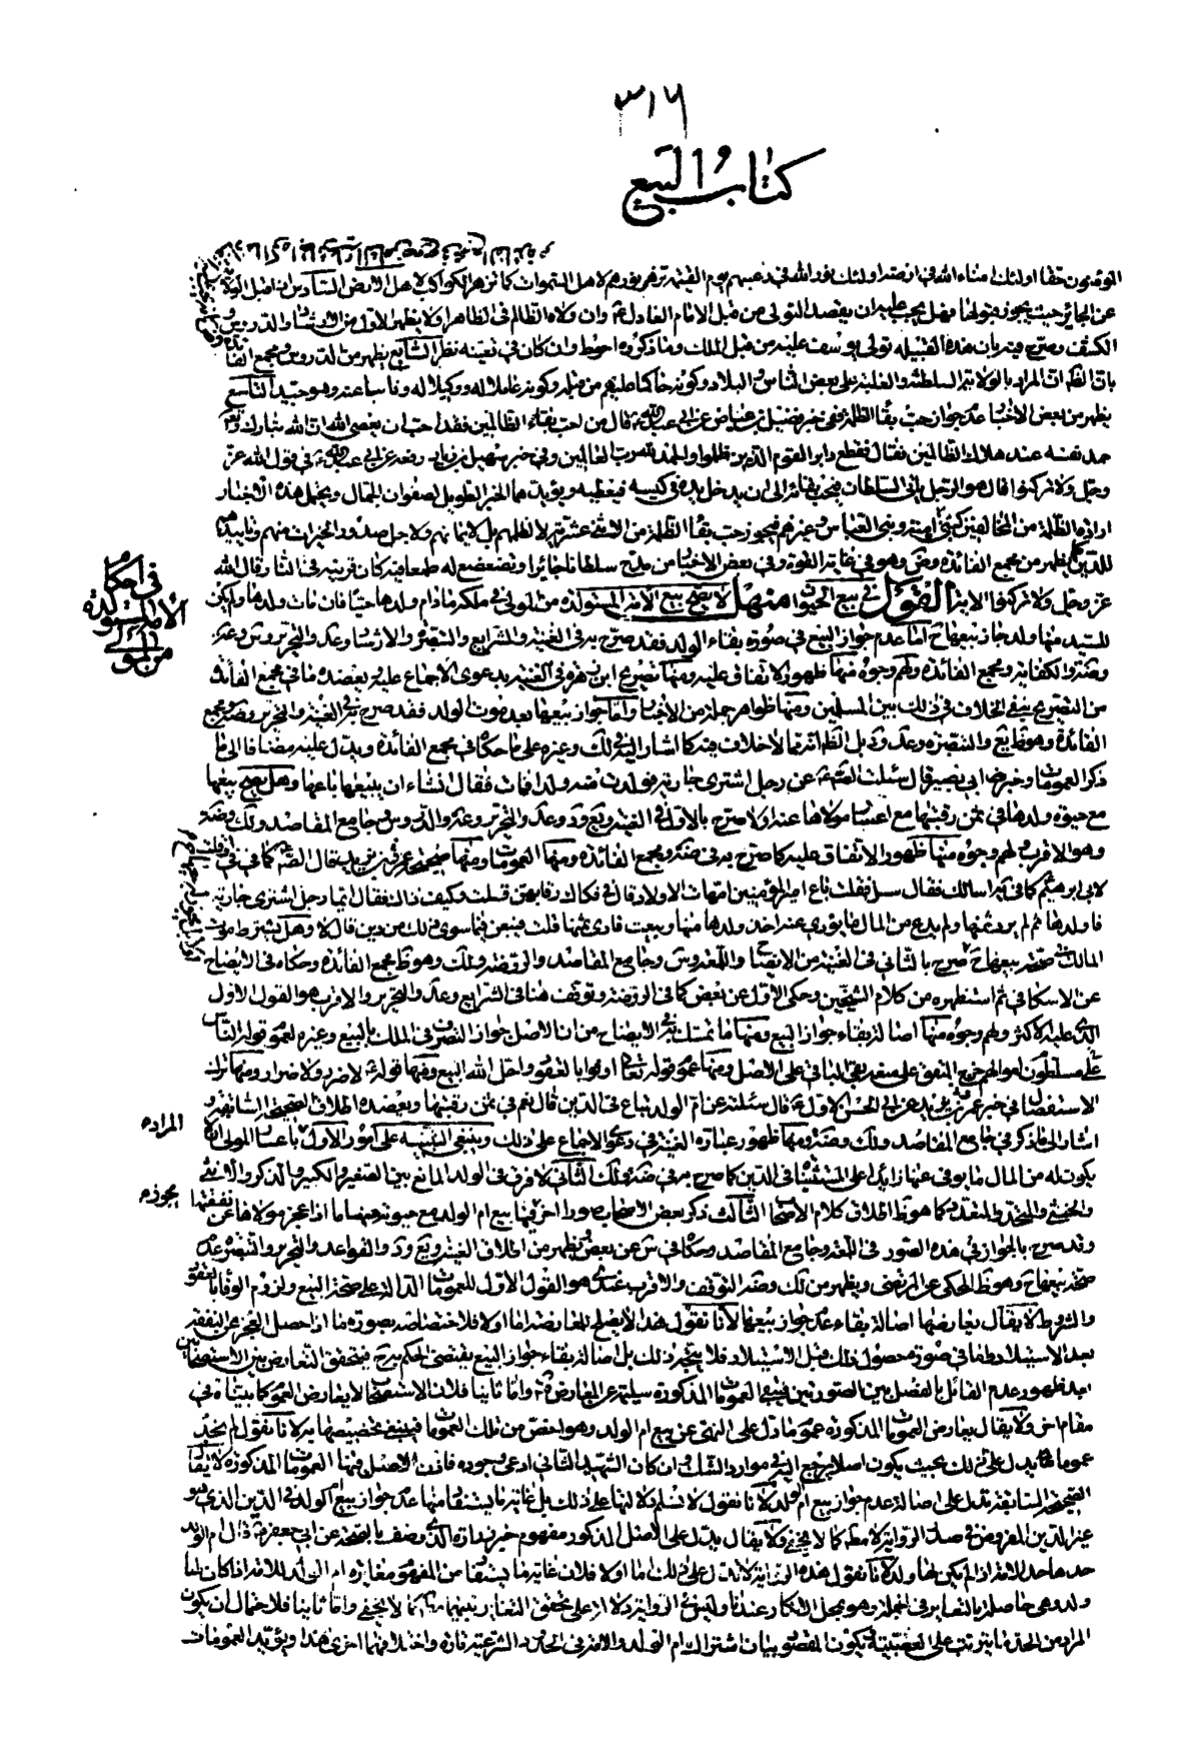 ٣١٦
كتاب البيع
المؤمنون حقا اولئك امناء الله في ارضه اولئك نور الله في رعيتهم يوم القيمة يزهر نورهم لاهل السموات كما تزهر الكواكب لاهل الارض السادس ان قبل الولاية
عن الجائر حيث يجوز قبولها فهل يجب عليه ان يقصد التولي من قبل الامام العادل وان ولاه الظالم في الظاهر او لا يظهر الاول من الارشاد والدروس
الكشف وصرح فيه بان هذه القبيلة تولى يوسف عليه من قبل الملك وما ذكروه احوط وان كان في تعينه نظر السابع يظهر من الدروس ومجمع الفائدة
بان الظ ان المراد بالولاية السلطنة والغلبة على بعض الناس والبلاد وكونه حاكما عليهم من قبله وكونه عاملا له ووكيلا له ونائبا عنه وهو جيد التاسع
يظهر من بعض الاخبار عدم جواز حب بقاء الظلمة ففي خبر فضيل بن عياض عن ابي عبد الله قال من احب بقاء الظالمين فقد احب ان يعصى الله ان الله تبارك وتعالى
حمد نفسه عند هلاك الظالمين فقال فقطع دابر القوم الذين ظلموا والحمد لله رب العالمين وفي خبر سهيل بن زياد رفعه عن ابي عبد الله في قول الله عز
وجل ولا تركنوا قال هو الرجل ياتي السلطان فيحب بقائه الى ان يدخل يده في كيسه فيعطيه ويؤيدهما الخبر الطويل لصفوان الجمال ويحتمل هذه الاخبار
ارادة الظلمة من المخالفين كبني امية وبني العباس وغيرهم فيجوز حب بقاء الظلمة من الاثنى عشرية لا لظلمهم بل لايمانهم ولاجل صدور الخيرات منهم وتاييدهم
للدين كما يظهر من مجمع الفائدة وض وهو في غاية القوة وفي بعض الاخبار من مدح سلطانا جائرا وتضعضع له طمعا فيه كان قرينه في النار قال الله
عز وجل ولا تركنوا الاية القول في بيع الحيوان منهل لا يصح بيع الامة المستولدة من المولى في ملكه ما دام ولدها حيا فان مات ولدها ولم يكن
للسيد منها ولد جاز بيعها ح اما عدم جواز البيع في صورة بقاء الولد فقد صرح به في الغنية والشرايع والتبصرة والارشاد وعد والتحرير وس وغير
وضه والكفاية ومجمع الفائدة ولهم وجوه منها ظهور الاتفاق عليه ومنها تصريح ابن زهرة في الغنية بدعوى الاجماع عليه ويعضده ما في مجمع الفائدة
من التصريح بنفي الخلاف في ذلك بين المسلمين ومنها ظواهر جملة من الاخبار واما جواز بيعها بعد موت الولد فقد صرح به في الغنية والتحرير وضه ومجمع
الفائدة وهو ظ يع والتبصرة وعد ود بل الظ انه مما لا خلاف فيه كما اشار اليه في لك وغيره على ما حكاه في مجمع الفائدة ويدل عليه مضافا الى ما
ذكر العمومات وخبر ابي بصير قال سئلت الصادق عن رجل اشترى جارية فولدت منه ولدا فمات فقال ان شاء ان يبيعها باعها وهل يصح بيعها
مع حيوة ولدها في ثمن رقبتها مع اعسار مولاها عنه او لا صرح بالاول في الغنية ويع ود وعد والتحرير وغير والدروس وجامع المقاصد ولك وضه
وهو الاقرب ولهم وجوه منها ظهور الاتفاق عليه كما صرح به في ضه ومجمع الفائدة ومنها العمومات ومنها صحيحة عمر بن يزيد قال
لابي ابراهيم كما في اسالك فقال سل فقلت لم باع امير المؤمنين امهات الاولاد قال في فكاك رقابهن قلت وكيف ذلك فقال ايما رجل اشترى جارية
فاولدها ثم لم يؤد ثمنها ولم يدع من المال ما يؤدي عنه اخذ ولدها منها وبيعت فادى ثمنها قلت فيبعن فيما سوى ذلك من دين قال لا وهل يشترط موت
المالك في صحة بيعها ح صرح بالثاني في الغنية من الايضاح واللمعة وس وجامع المقاصد والروضة ولك وهو ظ مجمع الفائدة وحكاه في الايضاح
عن الاسكافي ثم استظهره من كلام الشيخين وحكى الاول عن بعض كما في الروضة وتوقف هنا في الشرايع وعد والتحرير والاقرب هو القول الاول
الذي عليه الاكثر ولهم وجوه منها اصالة بقاء جواز البيع ومنها ما تمسك به في الايضاح من ان الاصل جواز التصرف في الملك بالبيع وغيره لعموم قوله الناس
مسلطون على اموالهم خرج المتفق عليه فيبقى الباقي على الاصل ومنها عموم قوله تعالى اوفوا بالعقود واحل الله البيع ومنها قوله لا ضرر ولا ضرار ومنها ترك
الاستفصال في خبر عمر بن يزيد عن ابي الحسن الاول قال سئلته عن ام الولد تباع في الدين قال نعم في ثمن رقبتها ويعضده اطلاق الصحيحة السابقة
اشار الى ما ذكر في جامع المقاصد ولك وضه ومنها ظهور عبارة الغنية في دعوى الاجماع على ذلك وينبغي التنبيه على امور الاول
يكون له من المال ما يوفى عنها زايدا على المستثنيات في الدين كما صرح به في ضه ولك الثاني لا فرق في الولد المانع بين الصغير والكبير والذكر والانثى
والخنثى والمتحد والمتعدد كما هو ظ اطلاق كلام الاصحاب الثالث ذكر بعض الاصحاب صورا اخر فيها بيع ام الولد مع حيوته منها ما اذا عجز مولاها عن نفقتها
وقد صرح بالجواز في هذه الصور في اللمعة وجامع المقاصد وحكاه في س عن بعض ويظهر من اطلاق الغنية ويع ود والقواعد والتحرير والتبصرة عدم
صحة بيعها ح وهو ظ المحكي عن المرتضى ويظهر من لك وضه التوقف والاقرب عندي هو القول الاول للعمومات الدالة على صحة البيع ولزوم الوفاء بالعقود
والشروط لا يقال يعارضها اصالة بقاء عدم جواز بيعها لانا نقول هذا لا يصلح للمعارضة اما اولا فلاختصاصه بصورة ما اذا حصل العجز عن النفقة
بعد الاستيلاد واما في صورة حصول ذلك قبل الاستيلاد فلا يتجه ذلك بل اصالة بقاء جواز البيع يقتضي الحكم به ح فيتحقق التعارض بين الاستصحابين
بعد ظهور عدم القائل بالفصل بين الصورتين فيبقى العمومات المذكورة سليمة عن المعارض واما ثانيا فلان الاستصحاب لا يعارض العموم كما بيناه في
مقام اخر ولا يقال يعارض العمومات المذكورة عموم ما دل على النهي عن بيع ام الولد وهو اخص من تلك العمومات فينبغي تخصيصها به لانا نقول لم نجد
عموما يدل على ذلك بحيث يكون اصلا يرجع اليه في موارد الشك وان كان الشهيد الثاني ادعى وجوده فاذن الاصل فيها العمومات المذكورة لا يقال
الصحيحة السابقة تدل على اصالة عدم جواز بيع ام الولد لانا نقول لا نسلم دلالتها على ذلك بل غاية ما يستفاد منها عدم جواز بيع ام الولد في الدين الذي هو
غير الدين المفروض في صدر الرواية لا مطلقا كما لا يخفى ولا يقال يدل على الاصل المذكور مفهوم خبر زرارة الذي وصف بالصحة عن ابي جعفر قال ام الولد
حدها حد الامة اذا لم يكن لها ولد لانا نقول هذه الرواية لا تدل على ذلك اما اولا فلان غاية ما يستفاد من المفهوم مغايرة ام الولد للامة اذا كان لها
ولد وهي حاصلة بالتغاير في الجملة وهو محل الانكار عندنا وليس في الرواية دلالة على تحقق التغاير بينهما كما لا يخفى واما ثانيا فلاحتمال ان يكون
المراد من الحد ما يترتب على المعصية فيكون المقصود بيان اشتراك ام الولد والامة في الحد الشرعية تارة واختلافهما اخرى هذا ويؤيد العمومات
في احكام
الامة المستولدة
من المولى
المراد
يجوز